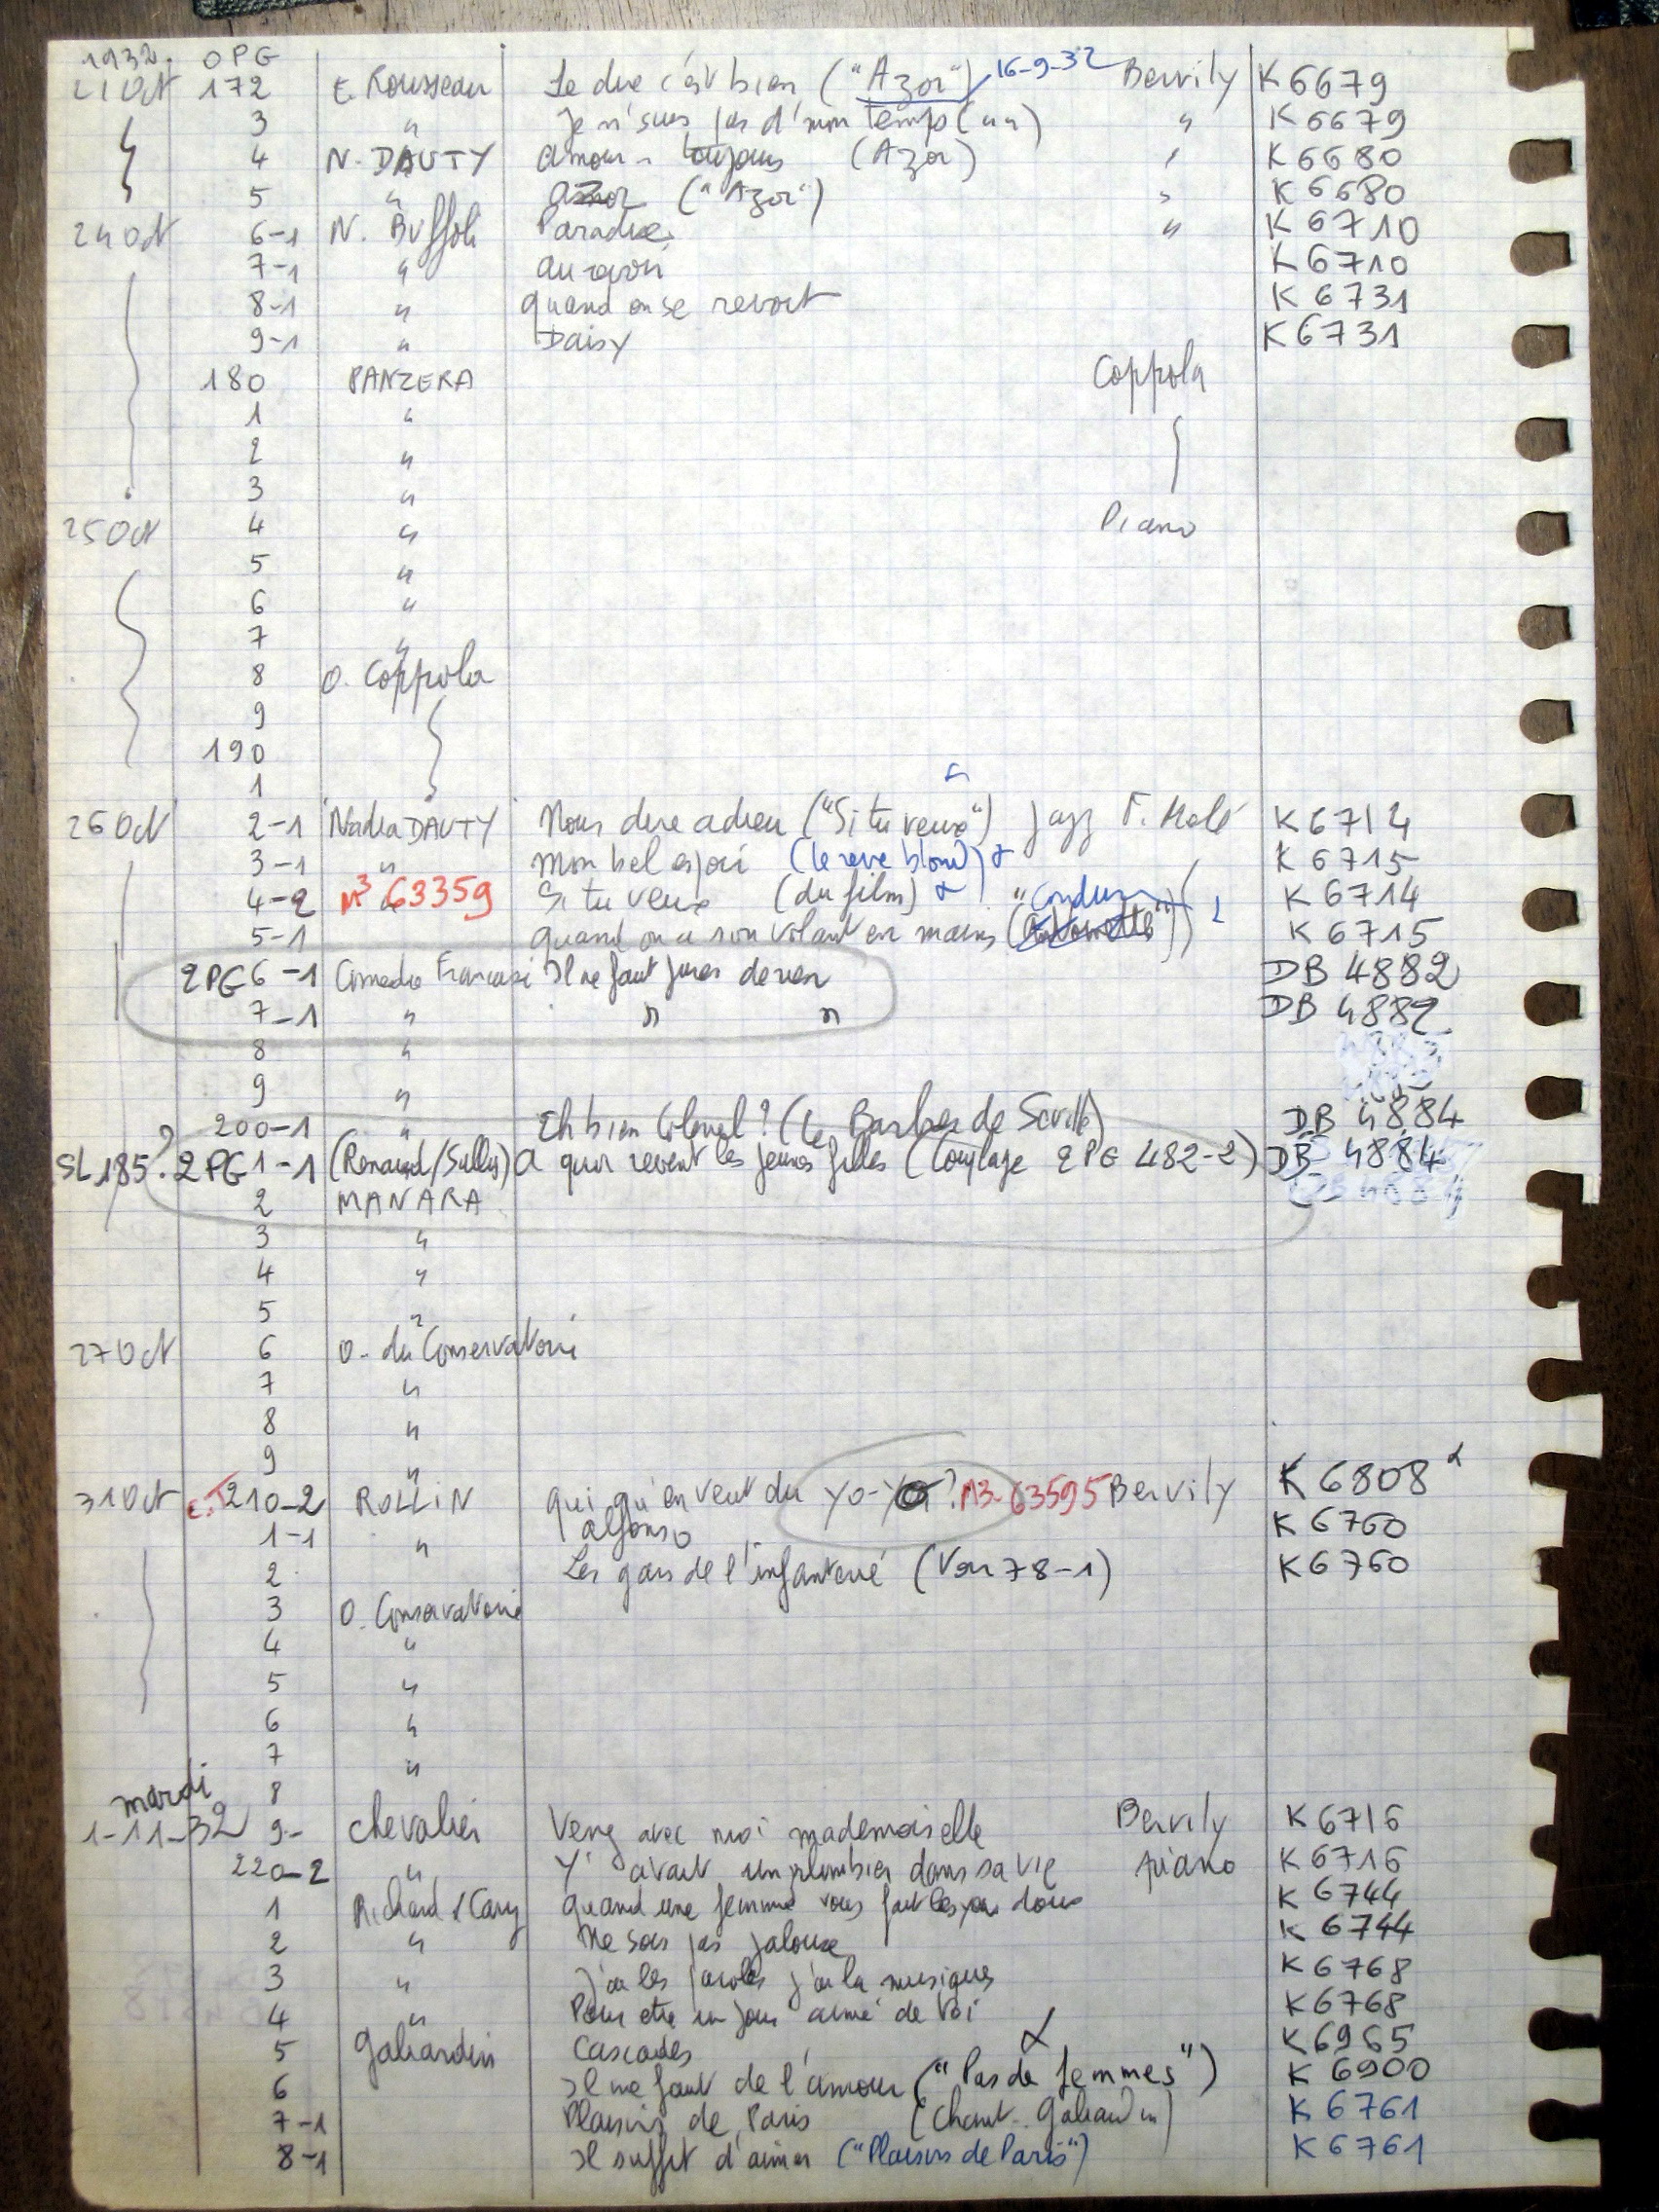 1932. OPG
21 Oct 172 E. Rousseau Le dire c'est bien ("Azor") 16-9-32 Bervily K 6679
3 " Je n'suis pas d'mon temps (" ") " K 6679
4 N. DAUTY amour - toujours (Azor) " K 6680
5 " azor ("Azor") " K 6680
24 Oct 6-1 N. Buffoli Paradis " K 6710
7-1 " au revoir K 6710
8-1 " quand on se revoit K 6731
9-1 " Daisy K 6731
180 PANZERA Coppola
1 "
2 "
3 "
25 Oct 4 " Piano
5 "
6 "
7 "
8 O. Coppola
9
190
1
26 Oct 2-1 Nadia DAUTY Nous dire adieu ("Si tu veux") Jazz F. K 6714
3-1 " mon bel espoir (le reve blond) K 6715
4-2 " M3 63359 Si tu veux (du film) K 6714
5-1 quand on a son volant en mains K 6715
2PG 6-1 Comedie Francaise Il ne faut jurer de rien DB 4882
7-1 " " " DB 4882
8 "
9 "
200-1 " Eh bien Colonel? (Le Barbier de Seville) DB 4884
SL 185? 2PG 1-1 (Renaud/Sullis) A quoi revent les jeunes filles (Couplage 2PG 482-2) DB 4884
2 MANARA
3 "
4 "
5 "
27 Oct 6 O. du Conservatoire
7 "
8 "
9 "
31 Oct 210-2 ROLLIN Qui qu'en veut du yo-yo? M3-63595 Bervily K 6808
1-1 " alfonso K 6760
2 Les gars de l'infanterie (Voir 78-1) K 6760
3 O. Conservatoire
4 "
5 "
6 "
7 "
mardi 8
1-11-32 9- Chevalier Venez avec moi mademoiselle Bervily K 6716
220-2 " Y' avait un plombier dans sa vie piano K 6716
1 Richard & Cary Quand une femme vous fait les yeux doux K 6744
2 " Ne sois pas jalouse K 6744
3 " J'ai les paroles j'ai la musique K 6768
4 " Pour etre un jour aimé de toi K 6768
5 Gahardin Cascades K 6965
6 Il me faut de l'amour ("Pas de femmes") K 6900
7-1 Plaisirs de Paris (Chant Gahardin) K 6761
8-1 Il suffit d'aimer ("Plaisirs de Paris") K 6761